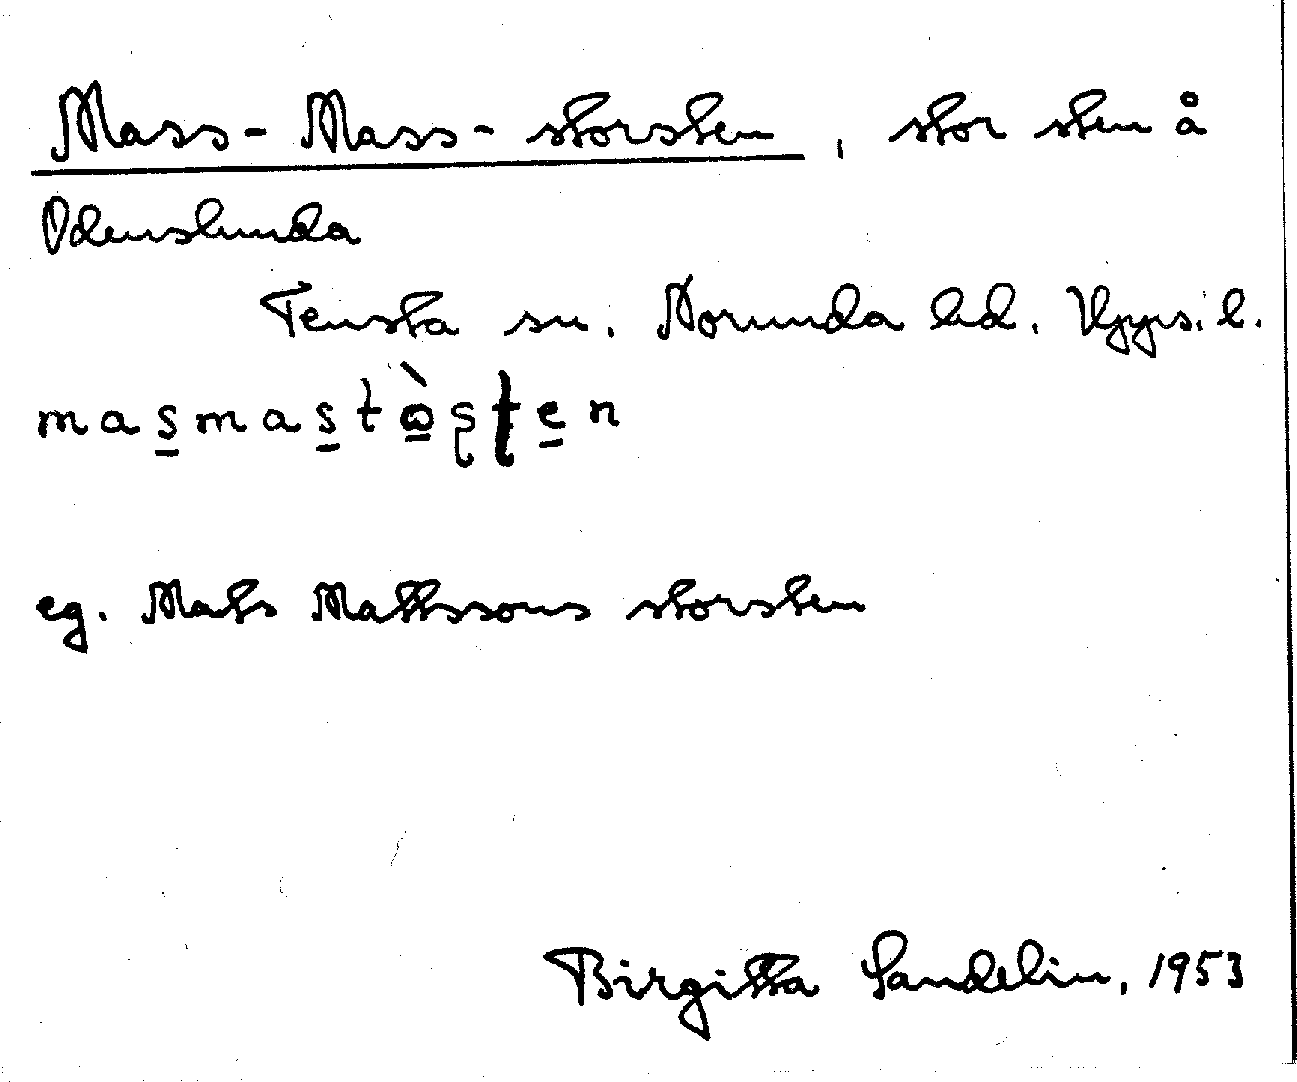 Mass-Mass-storsten, stor sten å
Odenslunda
Tensta sn. Norunda hd. Upps. l.
mas̲mas̲tò̲ʂʈe̲n
eg. Mats Matssons storsten
Birgitta Sandelin, 1953